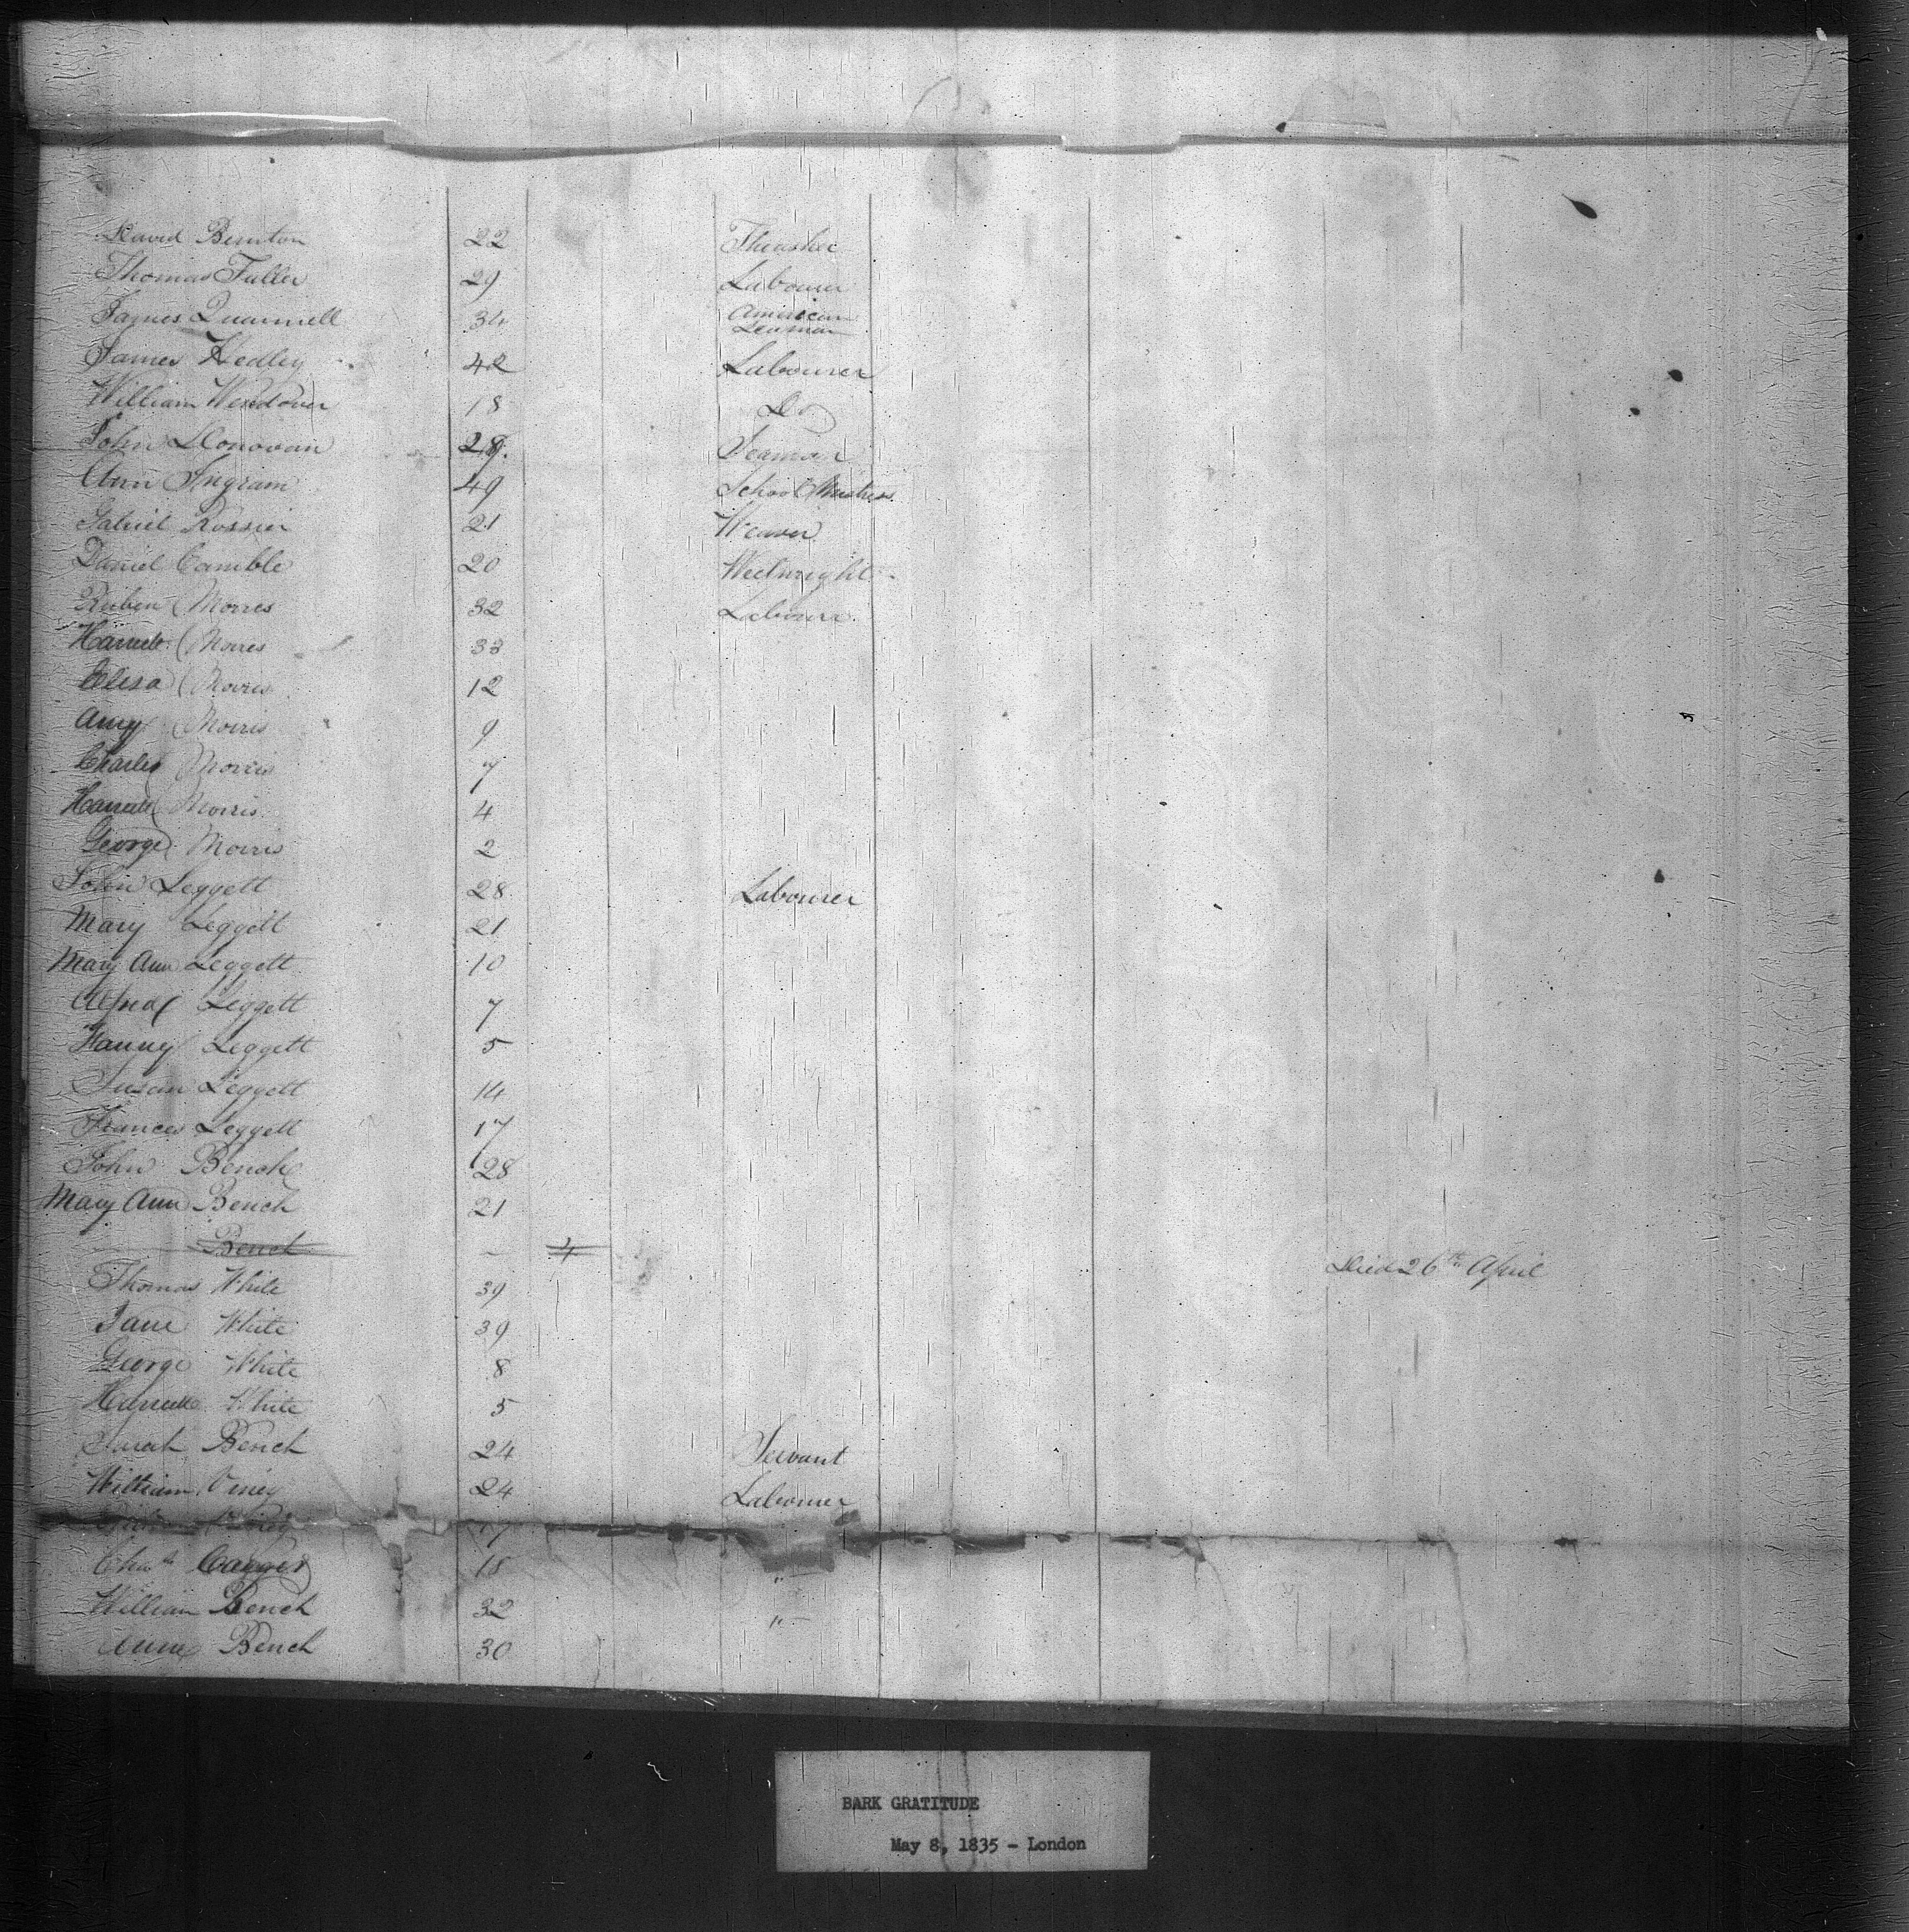 David Benton 22 Thrasher
Thomas Fuller 29 Labourer
James Quannell 34 American Seaman
James Hedley 42 Labourer
William Wendover 18 Do
John Donovan 28 Seaman
Ann Ingram 49 School Mistress
Rossier 21 Weaver
Daniel Camble 20 Weelwright
Ruben Morres 32 Labourer
Harriett Morres 33
Elisa Morris 12
Amy Morris 9
Charles Morris 7
Harriett Morris 4
George Morris 2
John Leggett 28 Labourer
Mary Leggett 21
Mary Ann Leggett 10
Alfred Leggett 7
Fanny Leggett 5
Susan Leggett 14
Frances Leggett 17
John Bench 28
Mary Ann Bench 21
Bench – 4 Died 26th April
Thomas White 39
Jane White 39
George White 8
Harriett White 5
Sarah Bench 24 Servant
William Viney 24 Labourer
Viney
18 "
William Bench 32 "
Anne Bench 30
BARK GRATITUDE
May 8, 1835 - London